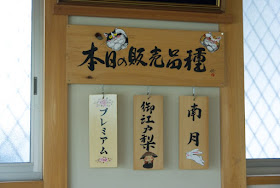 本日の販売品種
南月
御江戸梨
プレミアム